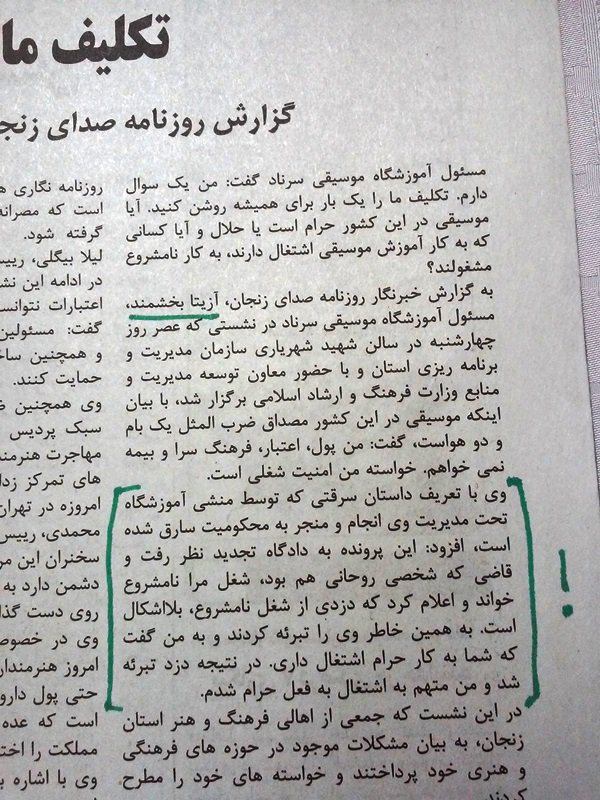 تکلیف ما
گزارش روزنامه صدای زنجا
مسئول آموزشگاه موسیقی سرناد گفت: من یک سوال
دارم. تکلیف ما را یک بار برای همیشه روشن کنید. آیا
موسیقی در این کشور حرام است یا حلال و آیا کسانی
که به کار آموزش موسیقی اشتغال دارند، به کار نامشروع
مشغولند؟
به گزارش خبرنگار روزنامه صدای زنجان، آزیتا بخشمند،
مسئول آموزشگاه موسیقی سرناد در نشستی که عصر روز
چهارشنبه در سالن شهید شهریاری سازمان مدیریت و
برنامه ریزی استان و با حضور معاون توسعه مدیریت و
منابع وزارت فرهنگ و ارشاد اسلامی برگزار شد، با بیان
اینکه موسیقی در این کشور مصداق ضرب المثل یک بام
و دو هواست، گفت: من پول، اعتبار، فرهنگ سرا و بیمه
نمی خواهم. خواسته من امنیت شغلی است.
وی با تعریف داستان سرقتی که توسط منشی آموزشگاه
تحت مدیریت وی انجام و منجر به محکومیت سارق شده
است، افزود: این پرونده به دادگاه تجدید نظر رفت و
قاضی که شخصی روحانی هم بود، شغل مرا نامشروع
خواند و اعلام کرد که دزدی از شغل نامشروع، بلااشکال
است. به همین خاطر وی را تبرئه کردند و به من گفت
که شما به کار حرام اشتغال داری. در نتیجه دزد تبرئه
شد و من متهم به اشتغال به فعل حرام شدم.
در این نشست که جمعی از اهالی فرهنگ و هنر استان
زنجان، به بیان مشکلات موجود در حوزه های فرهنگی
و هنری خود پرداختند و خواسته های خود را مطرح
کردند
روزنامه نگاری ه
است که مصرانه
گرفته شود.
لیلا بیگلی، رییس
در ادامه این نش
اعتبارات نتوانس
گفت: مسئولین
و همچنین ساخ
حمایت کنند.
وی همچنین خ
سبک پردیس
مهاجرت هنرمند
های تمرکز زدا
امروزه در تهران
محمدی، رییس
سخنران این مر
دشمن دارد به
روی دست گذا
وی در خصوص
امروز هنرمندار
حتی پول دارو
است که عده
مملکت را اخت
وی با اشاره ب
!